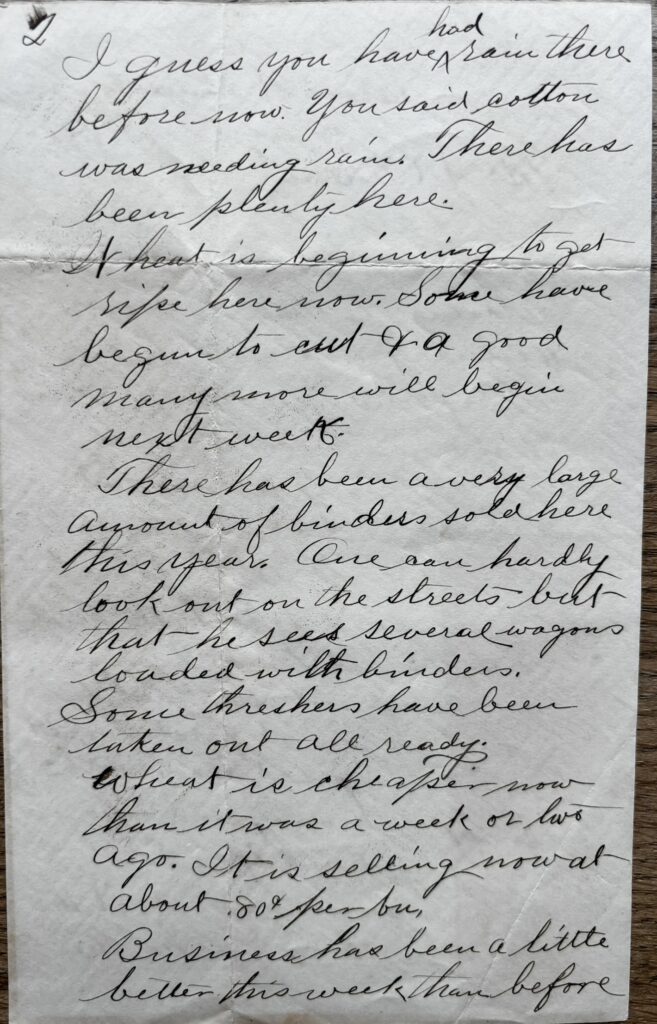 2
I guess you have had rain there
before now. You said cotton
was needing rain. There has
been plenty here.
Wheat is beginning to get
ripe here now. Some have
begun to cut & a good
many more will begin
next week.
There has been a very large
amount of binders sold here
this year. One can hardly
look out on the streets but
that he sees several wagons
loaded with binders.
Some threshers have been
taken out all ready.
Wheat is cheaper now
than it was a week or two
ago. It is selling now at
about .80¢ per bu.
Business has been a little
better this week than before